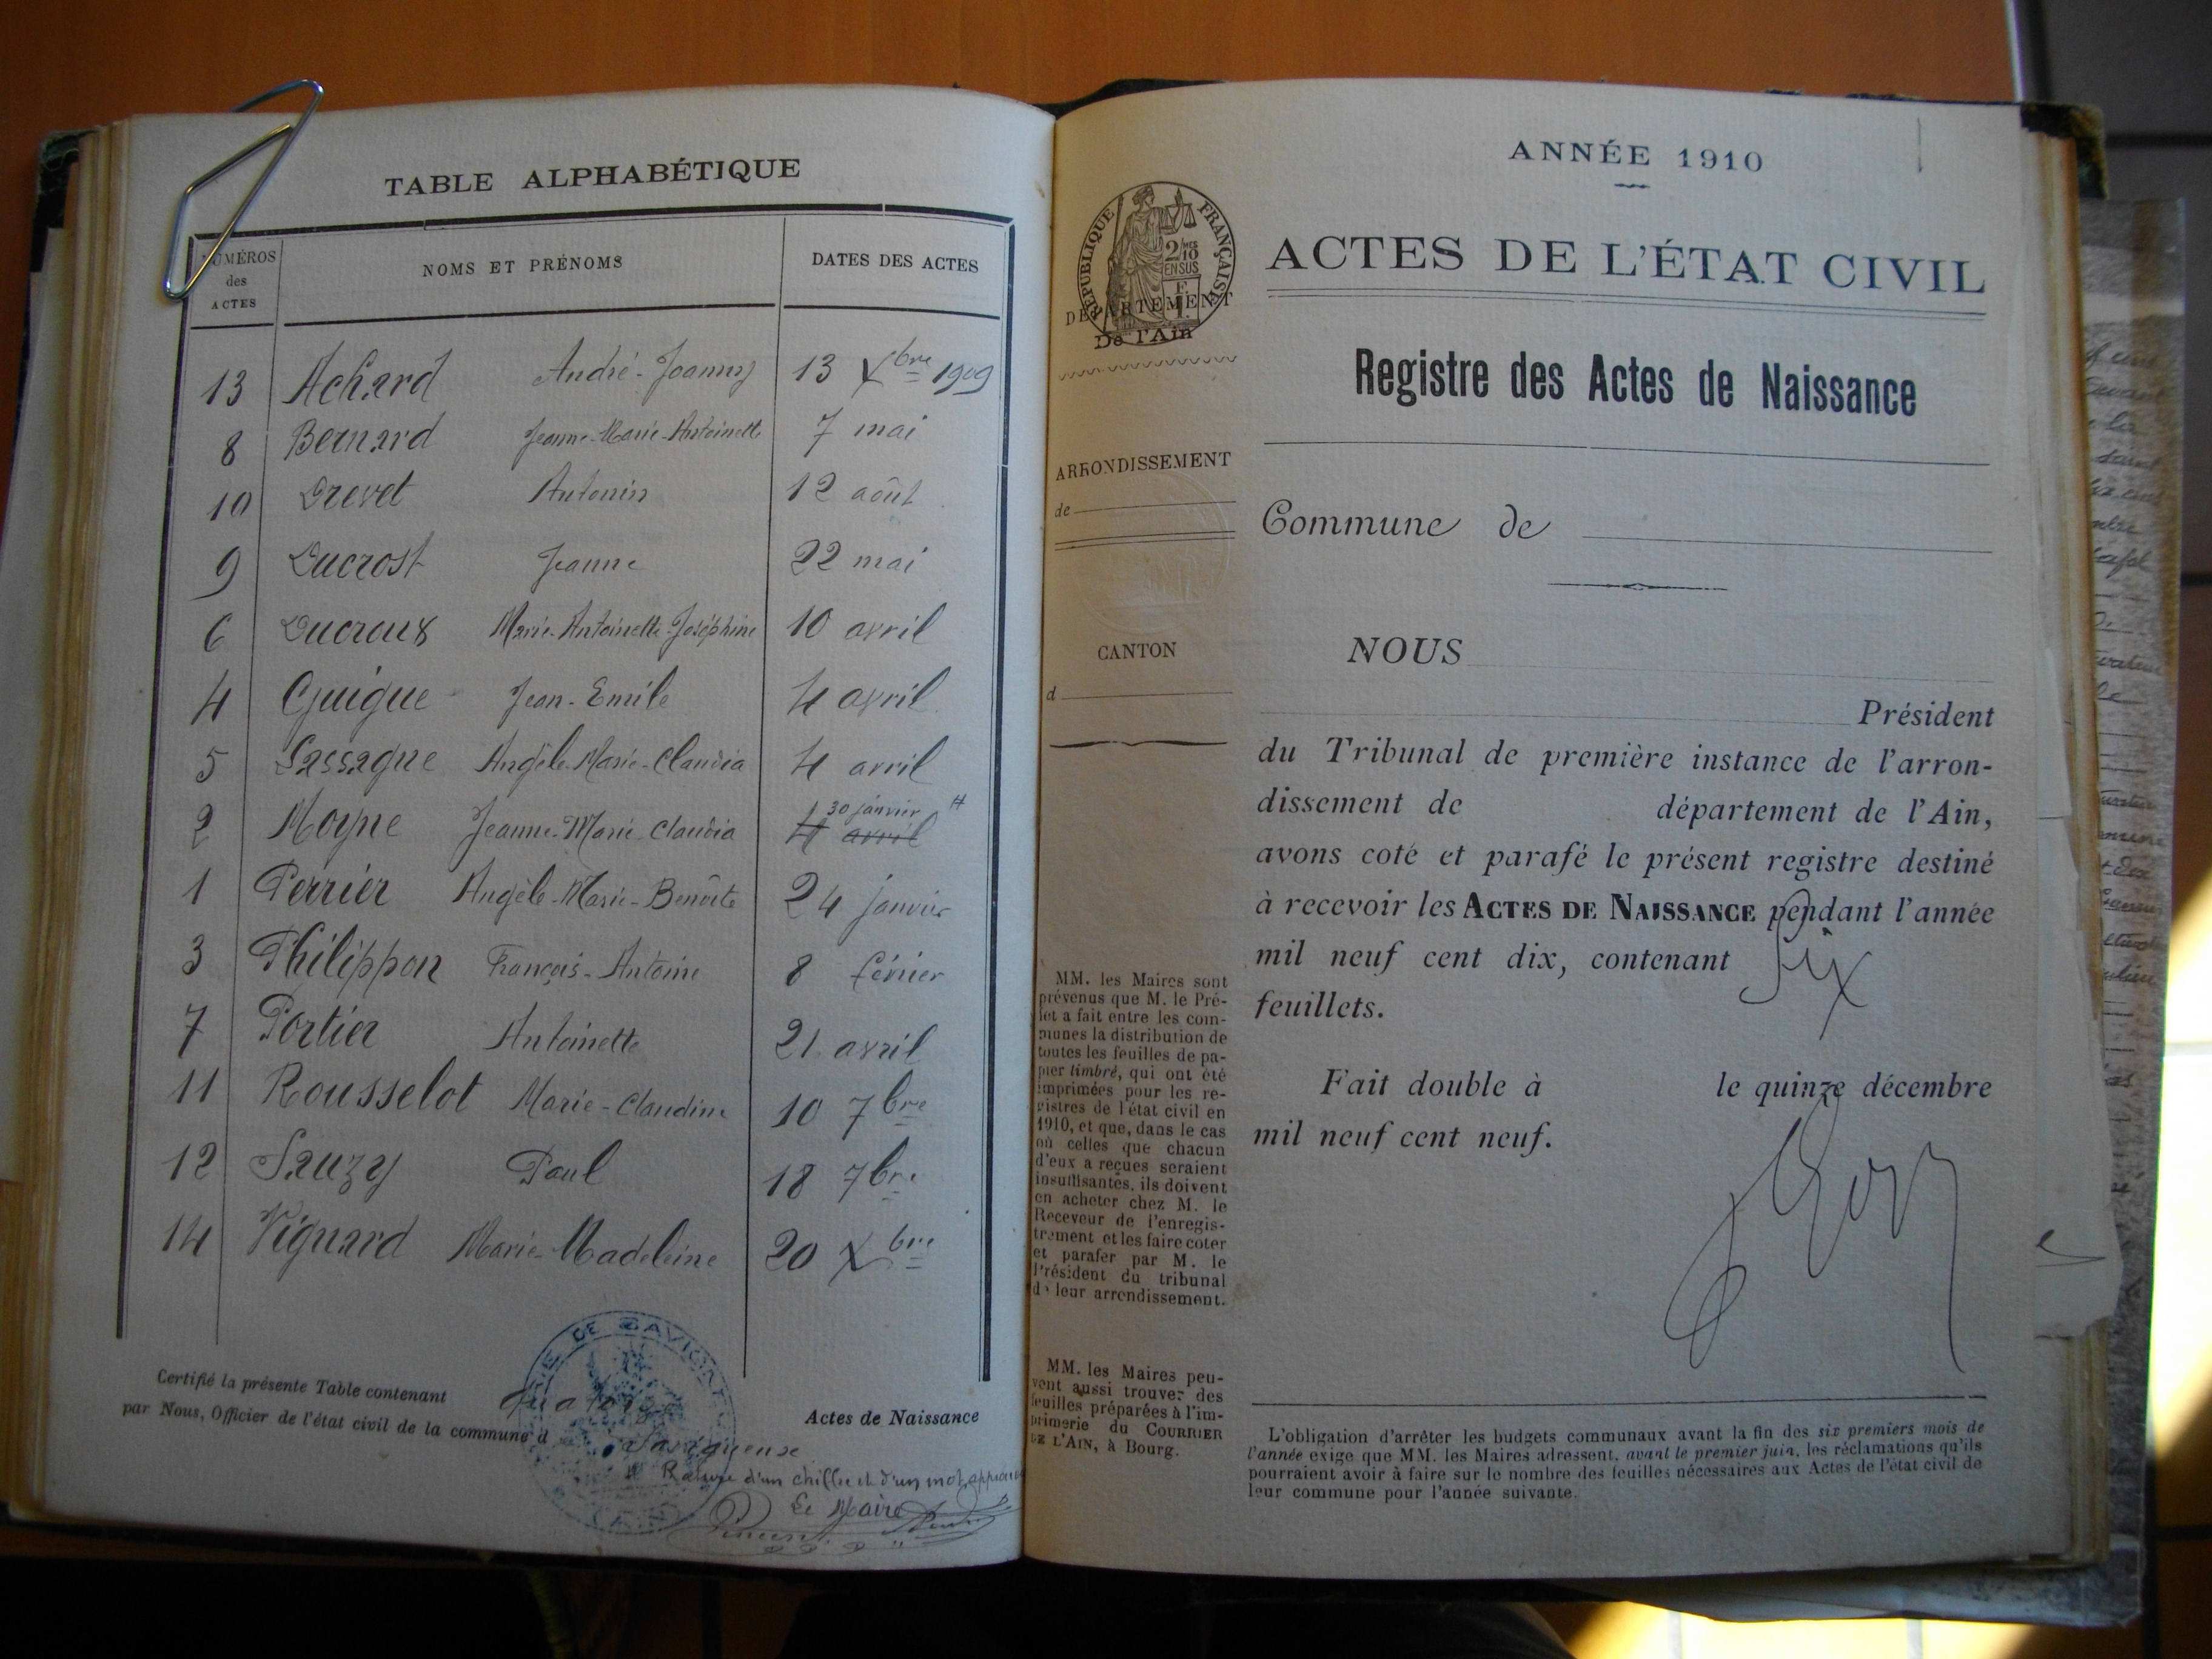 TABLE ALPHABÉTIQUE
NUMÉROS des ACTES NOMS ET PRÉNOMS DATES DES ACTES
13 Achard André-Joanny 13 Xbre 1909
8 Bernard Jeanne-Marie-Antoinette 7 mai
10 Drevet Antonin 12 août
9 Ducrost Jeanne 22 mai
6 Ducroux Marie-Antoinette-Joséphine 10 avril
4 Guigue Jean-Emile 4 avril
5 Lassagne Angèle-Marie-Claudia 4 avril
30 janvier
2 Moyne Jeanne-Marie-Claudia 4 avril
1 Perrier Angèle-Marie-Benoîte 24 janvier
3 Philippon François-Antoine 8 février
7 Portier Antoinette 21 avril
11 Rousselot Marie-Claudine 10 7bre
12 Sauzy Paul 18 7bre
14 Viguard Marie-Madeleine 20 Xbre
Certifié la présente Table contenant quatorze Actes de Naissance
par Nous, Officier de l'état civil de la commune d
Rature d'un chiffre et d'un mot approuvée
Le Maire
ANNÉE 1910
RÉPUBLIQUE FRANÇAISE
2/10
EN SUS
DÉPARTEMENT
De l'Ain
ARRONDISSEMENT
de
CANTON
d
MM. les Maires sont
prévenus que M. le Pré-
fet a fait entre les com-
munes la distribution de
toutes les feuilles de pa-
pier timbré, qui ont été
imprimées pour les re-
gistres de l'état civil en
1910, et que, dans le cas
où celles que chacun
d'eux a reçues seraient
insuffisantes, ils doivent
en acheter chez M. le
Receveur de l'enregis-
trement et les faire coter
et parafer par M. le
Président du tribunal
de leur arrondissement.
MM. les Maires peu-
vent aussi trouver des
feuilles préparées à l'im-
primerie du COURRIER
DE L'AIN, à Bourg.
ACTES DE L'ÉTAT CIVIL
Registre des Actes de Naissance
Commune de
NOUS
Président
du Tribunal de première instance de l'arron-
dissement de département de l'Ain,
avons coté et parafé le présent registre destiné
à recevoir les ACTES DE NAISSANCE pendant l'année
mil neuf cent dix, contenant six
feuillets.
Fait double à le quinze décembre
mil neuf cent neuf.
L'obligation d'arrêter les budgets communaux avant la fin des six premiers mois de
l'année exige que MM. les Maires adressent, avant le premier juin, les réclamations qu'ils
pourraient avoir à faire sur le nombre des feuilles nécessaires aux Actes de l'état civil de
leur commune pour l'année suivante.